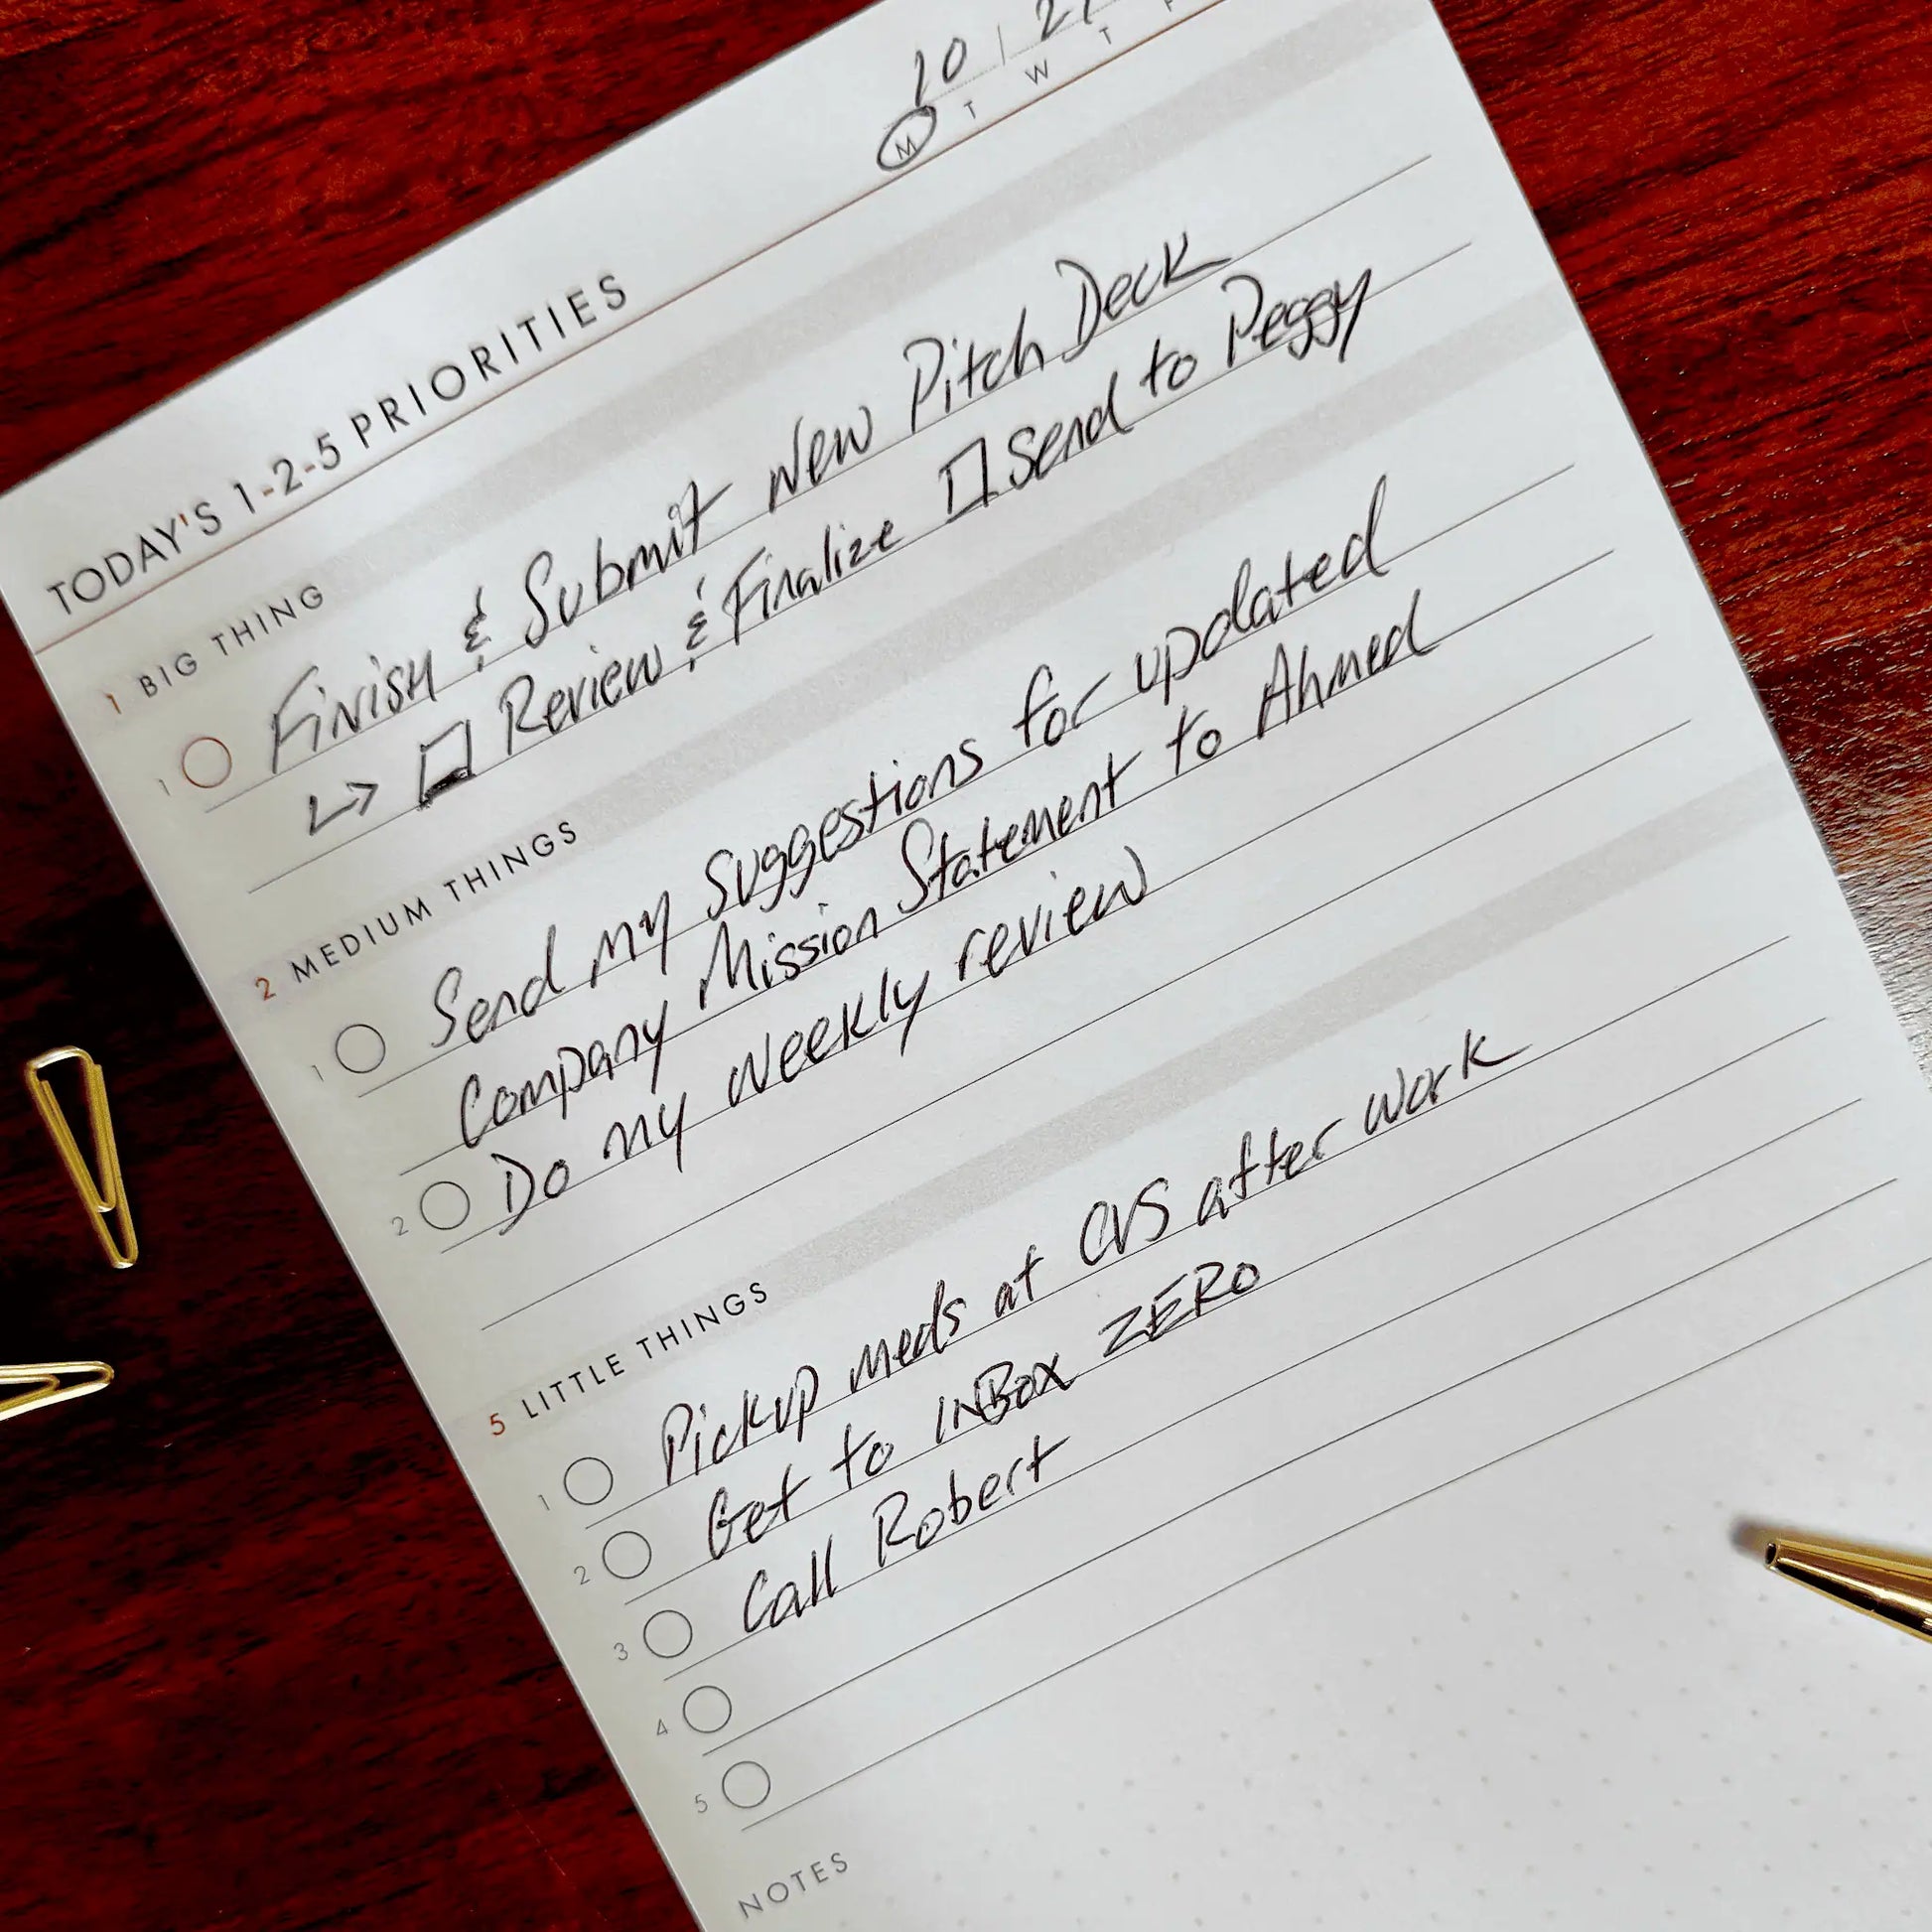 10 / 2
M T W T
TODAY'S 1-2-5 PRIORITIES
1 BIG THING
1 Finish & Submit New Pitch Deck
↳ □ Review & Finalize □ Send to Peggy
2 MEDIUM THINGS
1 Send my suggestions for updated
Company Mission Statement to Ahmed
2 Do my weekly review
5 LITTLE THINGS
1 Pickup meds at CVS after work
2 Get to INBOX ZERO
3 Call Robert
4
5
NOTES